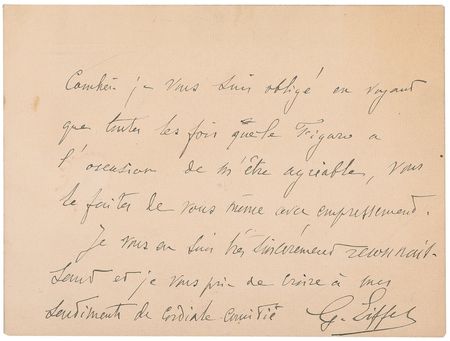 Combien je vous suis obligé en voyant
que toutes les fois que le Figaro a
l'occasion de m'être agréable, vous
le faites de vous même avec empressement.
Je vous en suis très sincèrement reconnais-
sant et je vous prie de croire à mes
sentiments de cordiale
G.